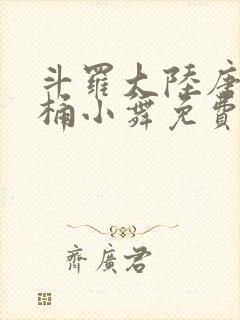 斗羅大陸唐
桶小舞免費
齊廣君